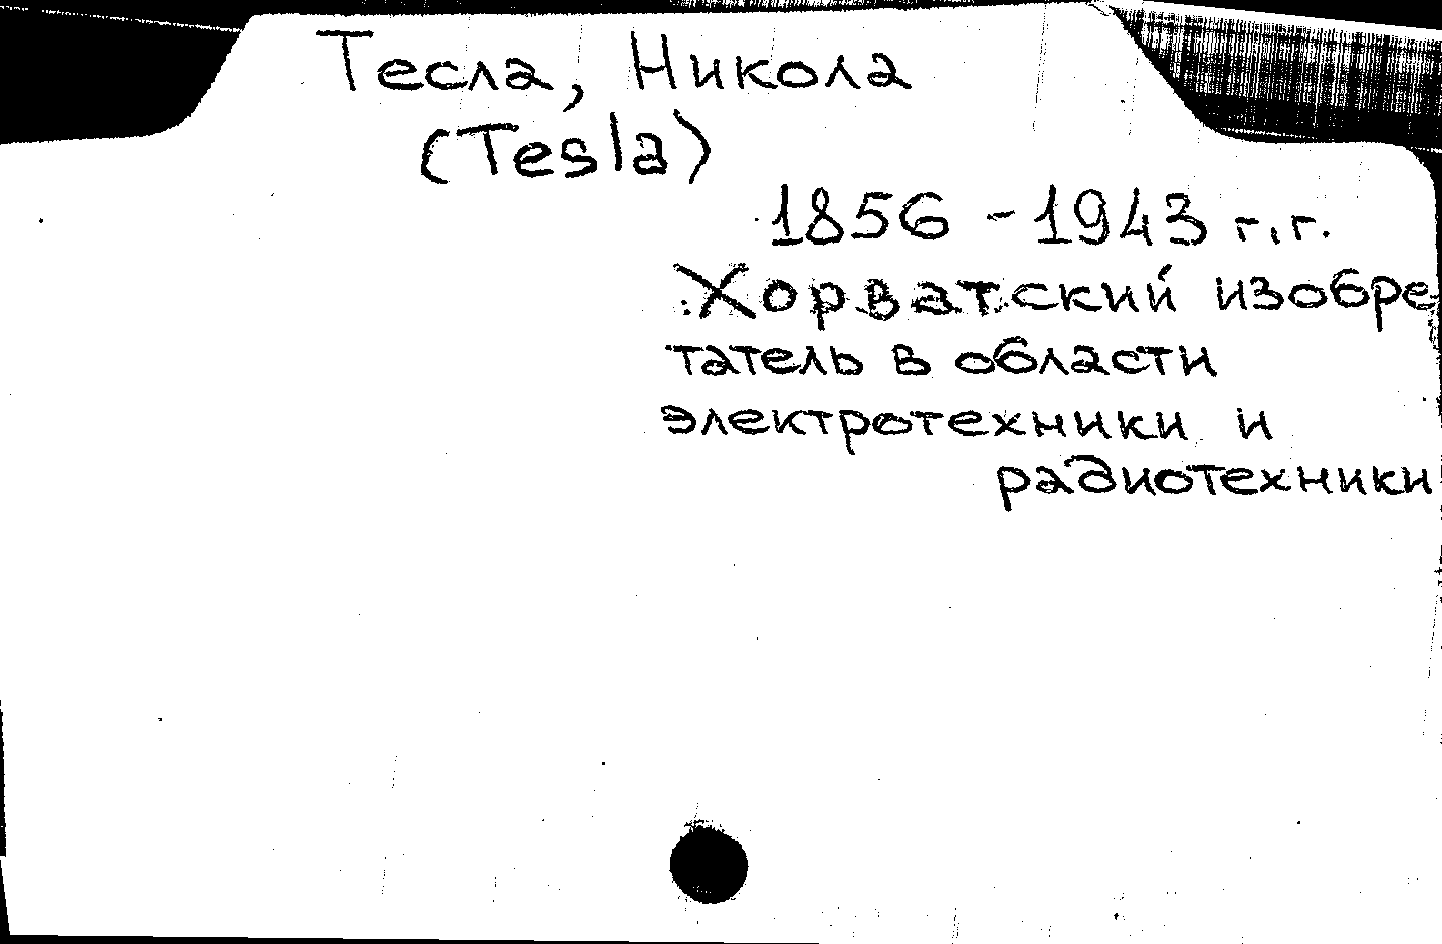 Тесла, Никола
(Tesla)
1856 - 1943 г.г.
Хорватский изобре
татель в области
электротехники и
радиотехники